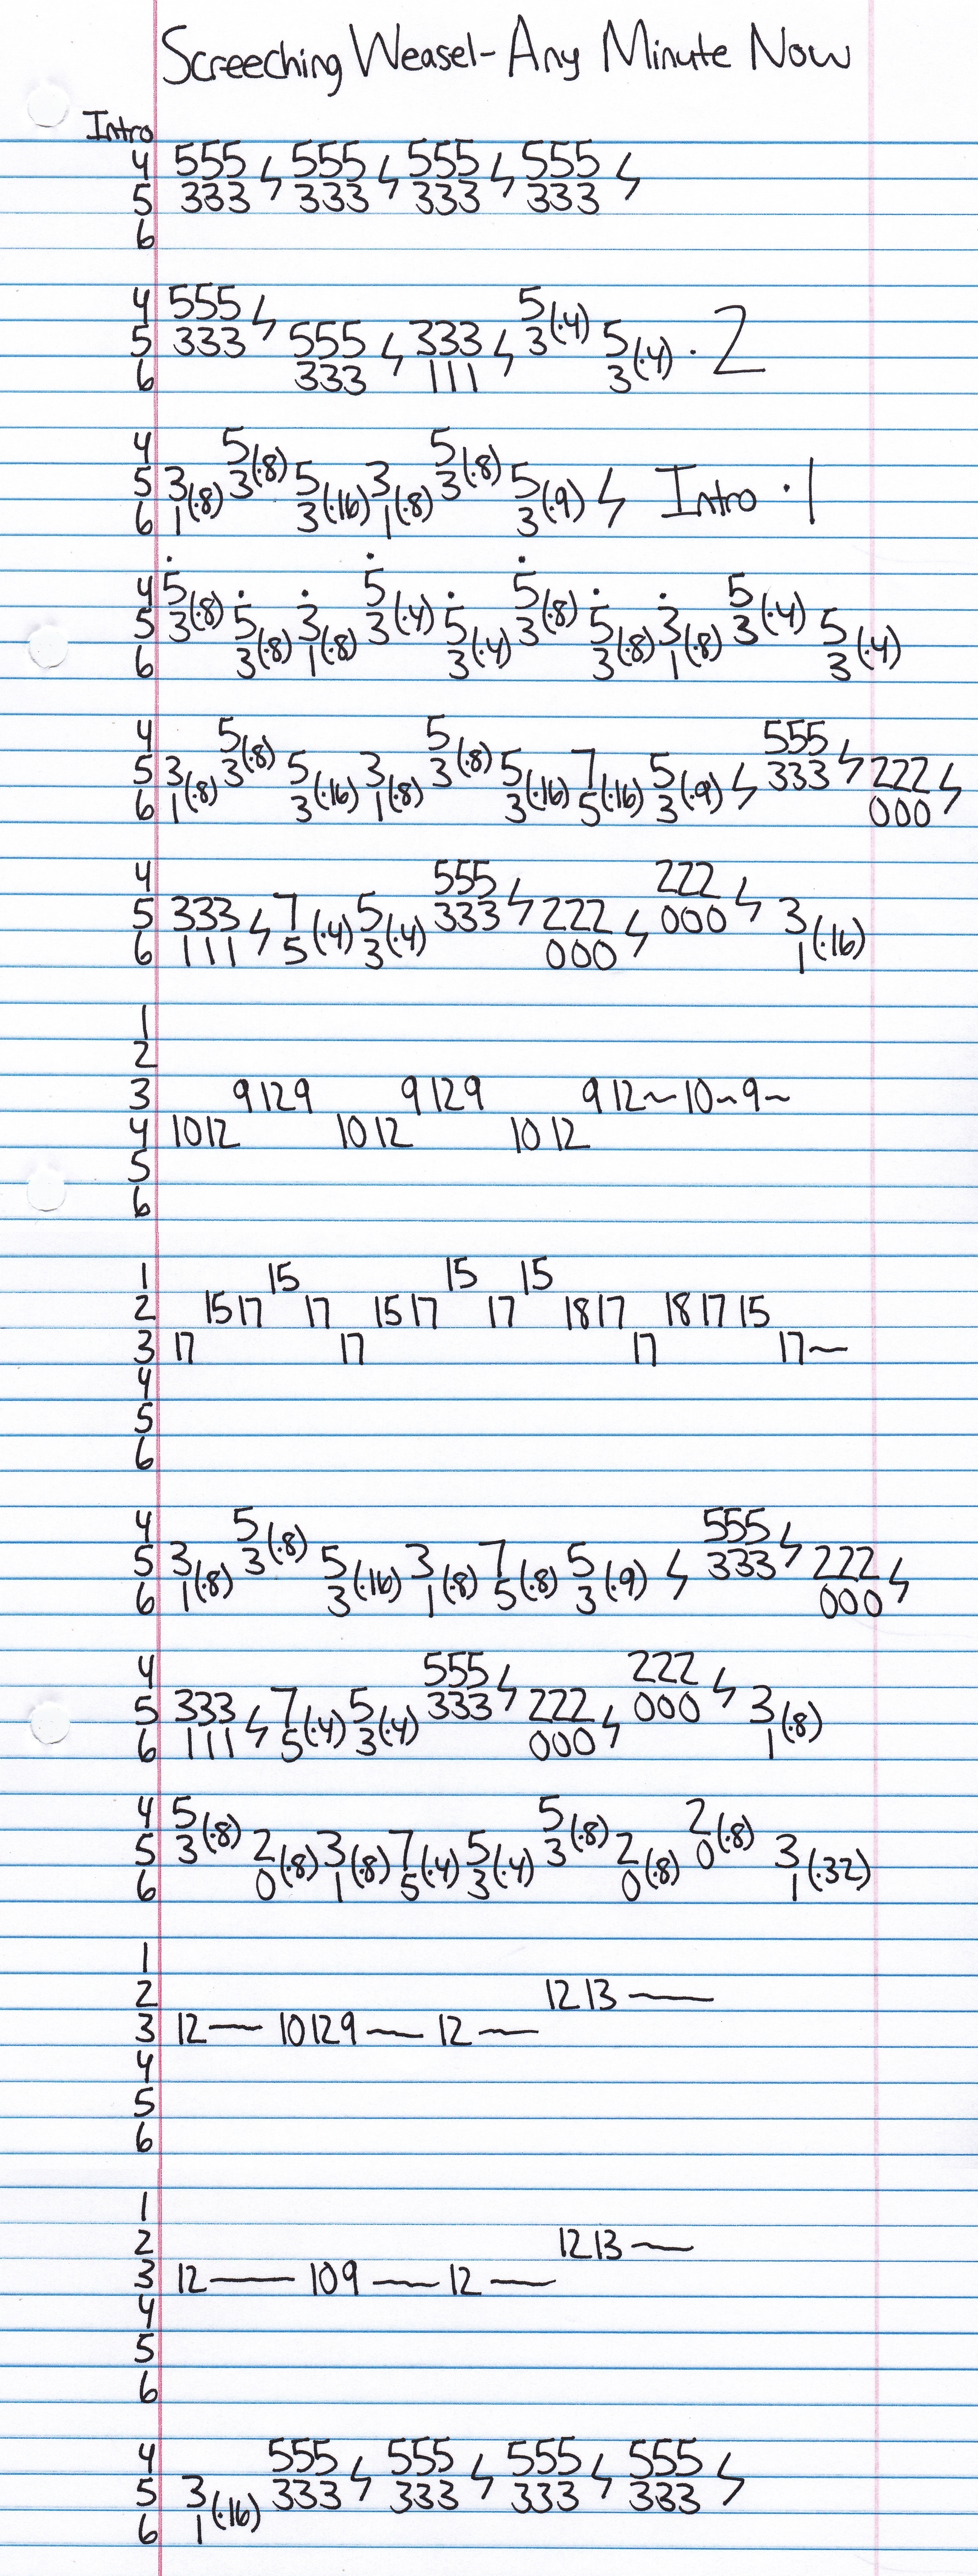 Screeching Weasel - Any Minute Now
Intro
4 555 ϟ 555 ϟ 555 ϟ 555 ϟ
5 333 333 333 333
6
4 555 ϟ 5(·4)
5 333 555 ϟ 333 ϟ 3 5(·4) · 2
6 333 111 3
4 5(·8) 5(·8)
5 3(·8) 3 5(·16) 3(·8) 3 5(·9) ϟ Intro · 1
6 1 3 1 3
4 5(·8) 5(·4) 5(·8) 5(·4)
5 3 5(·8) 3(·8) 3 5(·4) 3 5(·8) 3(·8) 3 5(·4)
6 3 1 3 3 1 3
4 5(·8) 5(·8) 555 ϟ
5 3(·8) 3 5(·16) 3(·8) 3 5(·16) 7(·16) 5(·9) ϟ 333 222 ϟ
6 1 3 1 3 5 3 000
4 555 ϟ 222 ϟ
5 333 ϟ 7(·4) 5(·4) 333 222 ϟ 000 3(·16)
6 111 5 3 000 1
1
2
3 9 12 9 9 12 9 9 12~10~9~
4 10 12 10 12 10 12
5
6
1 15 15 15
2 15 17 17 15 17 17 18 17 18 17 15
3 17 17 17 17~
4
5
6
4 5(·8) 555 ϟ
5 3(·8) 3 5(·16) 3(·8) 7(·8) 5(·9) ϟ 333 222 ϟ
6 1 3 1 5 3 000
4 555 ϟ 222 ϟ
5 333 ϟ 7(·4) 5(·4) 333 222 ϟ 000 3(·8)
6 111 5 3 000 1
4 5(·8) 5(·8) 2(·8)
5 3 2(·8) 3(·8) 7(·4) 5(·4) 3 2(·8) 0 3(·32)
6 0 1 5 3 0 1
1
2 12 13~
3 12~ 10 12 9~ 12~
4
5
6
1
2 12 13~
3 12~ 10 9~ 12~
4
5
6
4 555 ϟ 555 ϟ 555 ϟ 555 ϟ
5 3(·16) 333 333 333 333
6 1